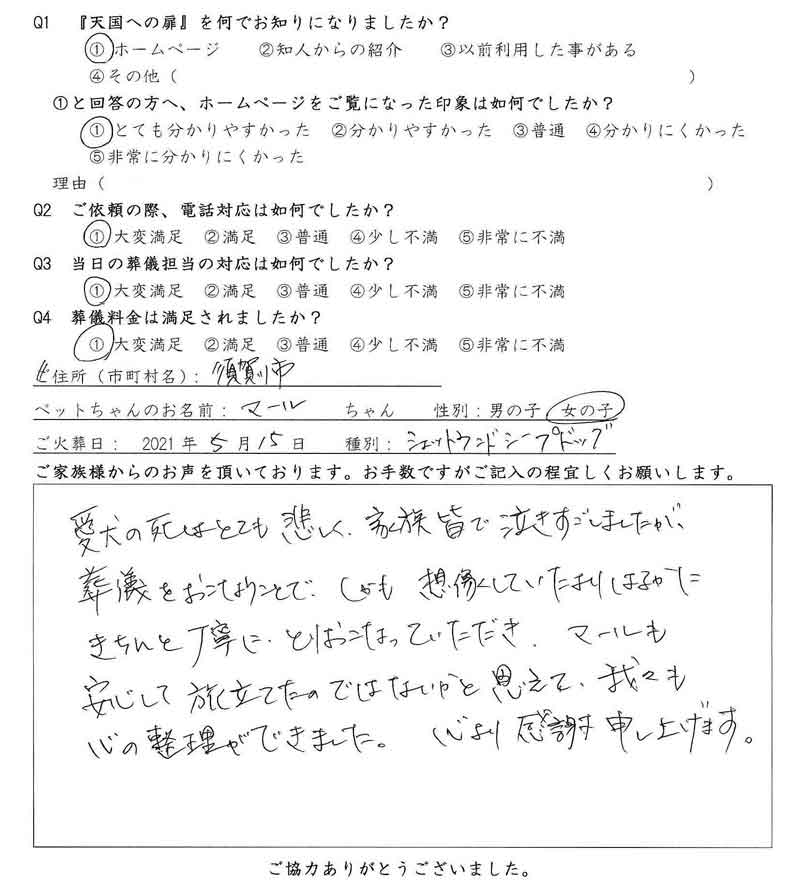 Q1 『天国への扉』を何でお知りになりましたか？
①ホームページ ②知人からの紹介 ③以前利用した事がある
④その他（ ）
①と回答の方へ、ホームページをご覧になった印象は如何でしたか？
①とても分かりやすかった ②分かりやすかった ③普通 ④分かりにくかった
⑤非常に分かりにくかった
理由（ ）
Q2 ご依頼の際、電話対応は如何でしたか？
①大変満足 ②満足 ③普通 ④少し不満 ⑤非常に不満
Q3 当日の葬儀担当の対応は如何でしたか？
①大変満足 ②満足 ③普通 ④少し不満 ⑤非常に不満
Q4 葬儀料金は満足されましたか？
①大変満足 ②満足 ③普通 ④少し不満 ⑤非常に不満
ご住所（市町村名）： 須賀川市
ペットちゃんのお名前： マール ちゃん 性別：男の子 女の子
ご火葬日： 2021年 5月 15日 種別： シェットランドシープドッグ
ご家族様からのお声を頂いております。お手数ですがご記入の程宜しくお願いします。
愛犬の死はとても悲しく、家族皆で泣きすごしましたが、
葬儀をおこなうことで、しかも想像していたよりはるかに
きちんと丁寧に、とりおこなっていただき、マールも
安心して旅立てたのではないかと思えて、我々も
心の整理ができました。心より感謝申し上げます。
ご協力ありがとうございました。